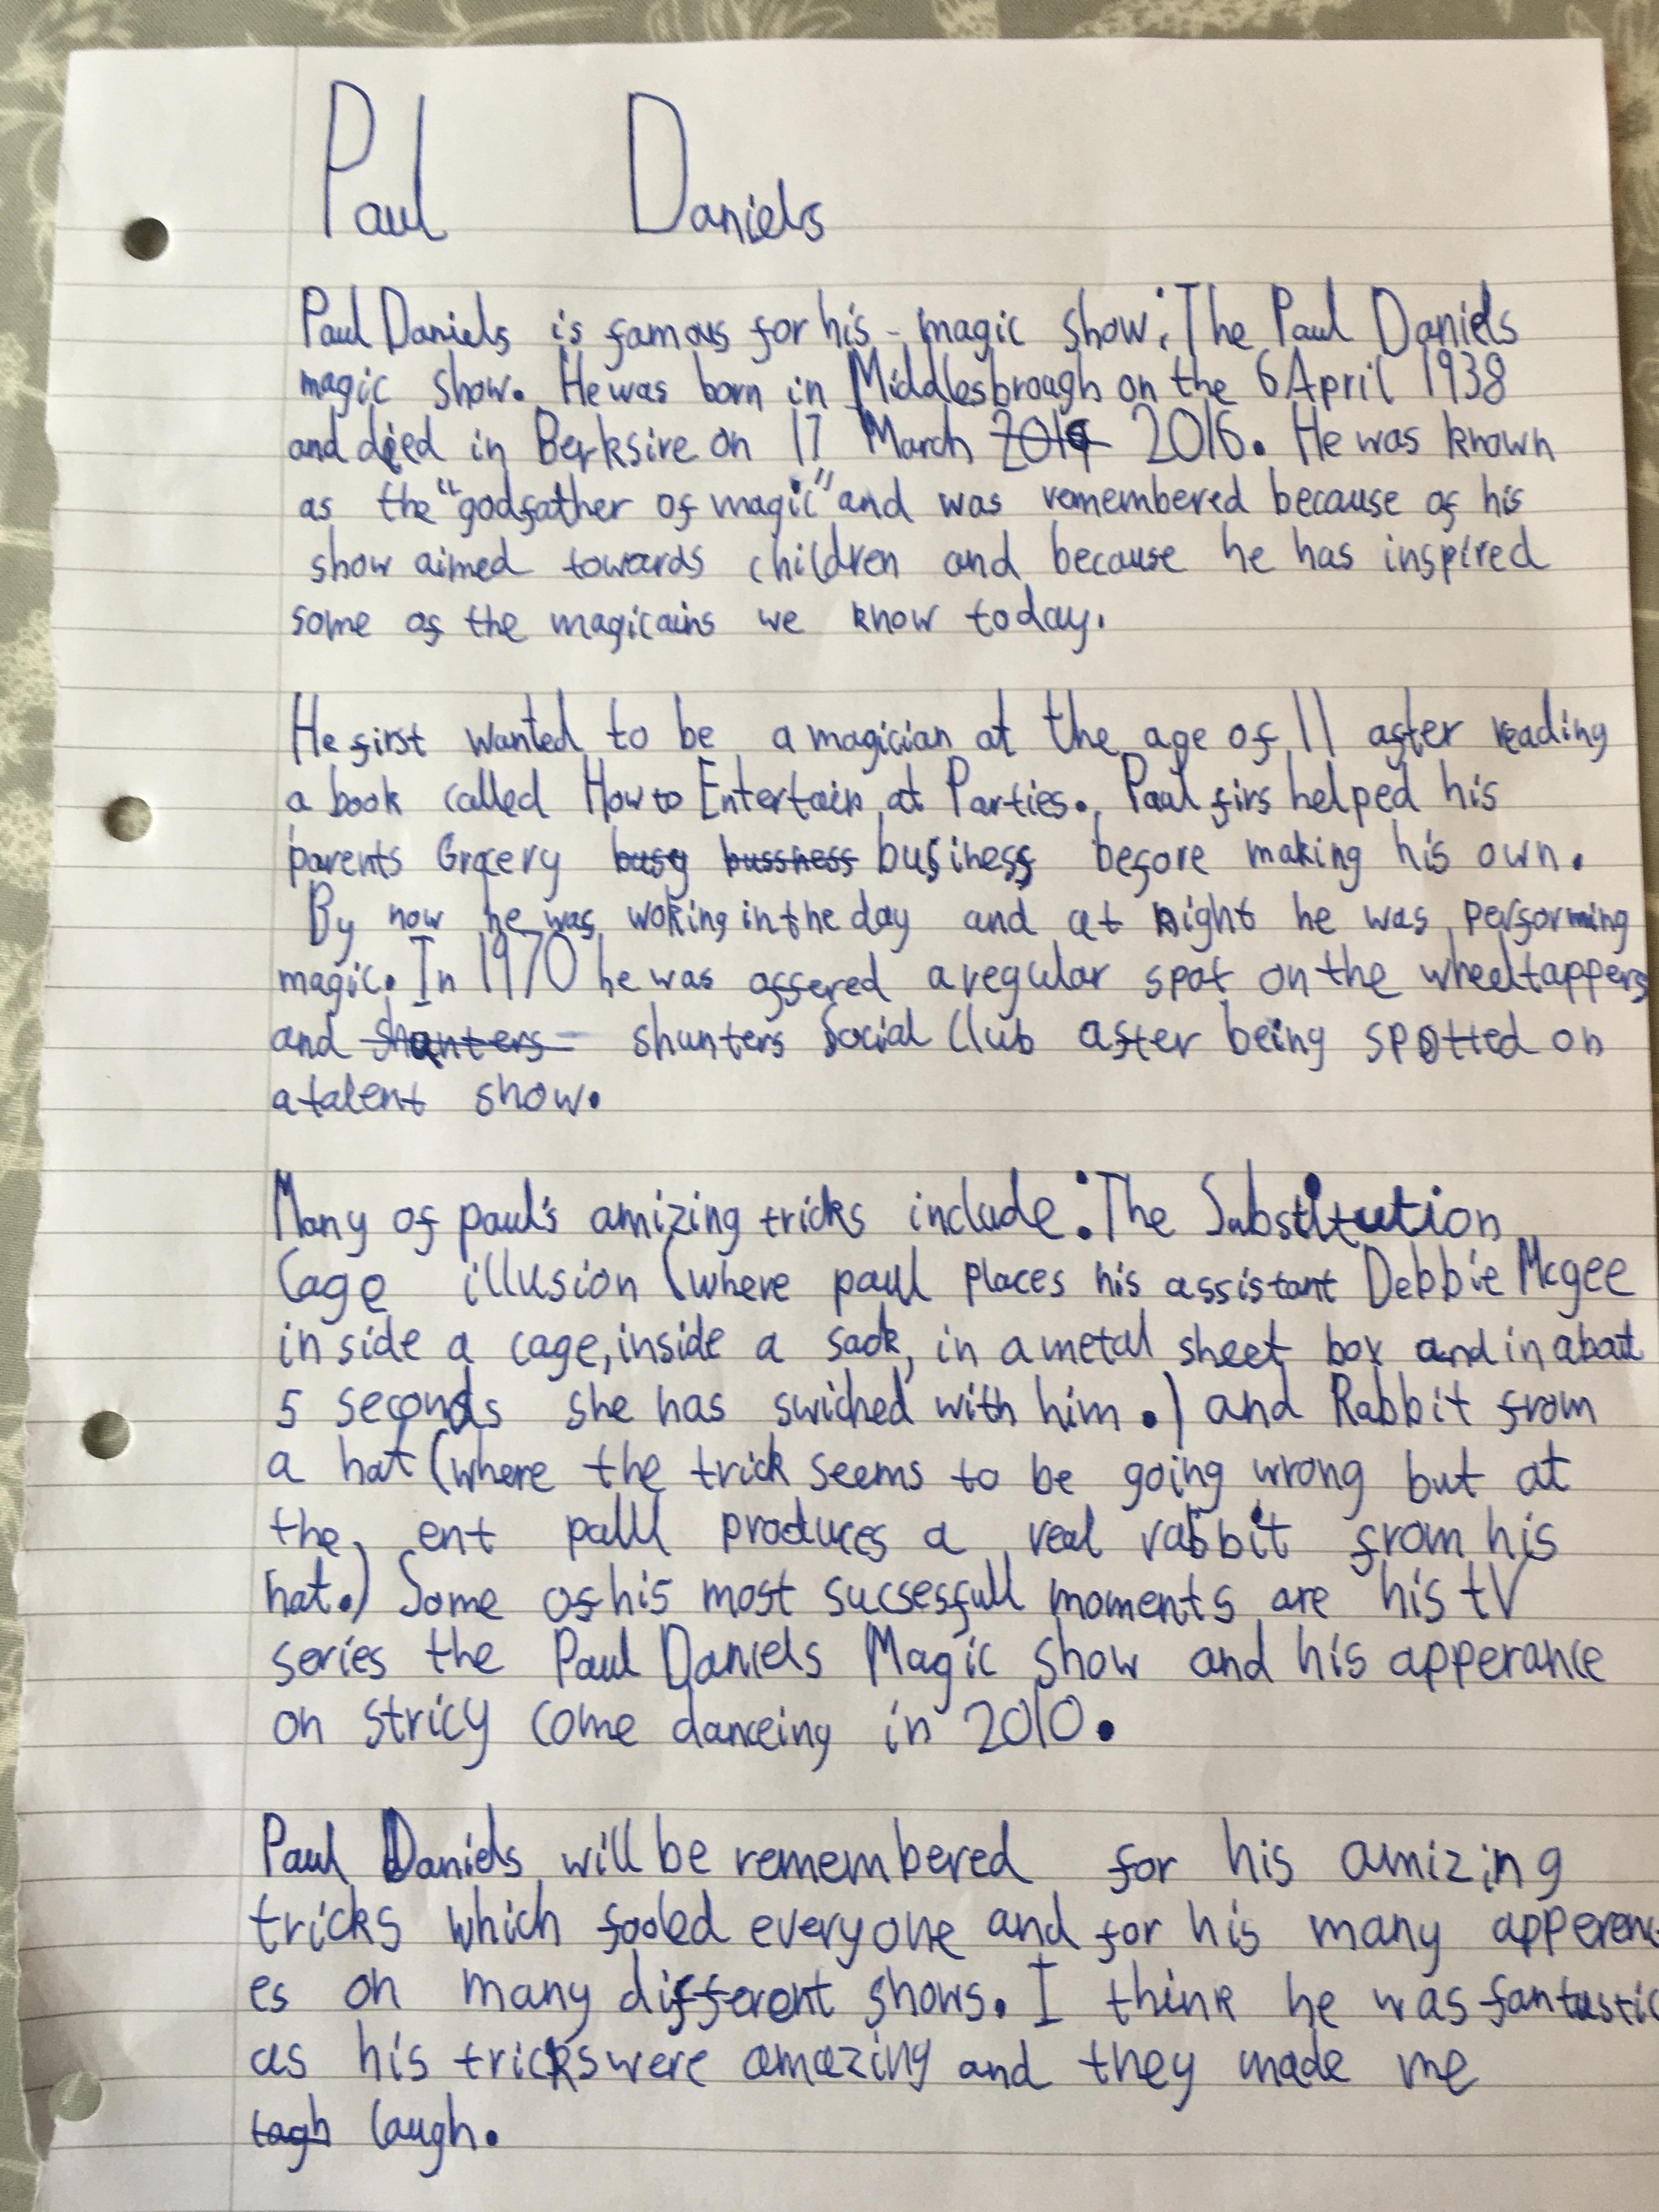 Paul Daniels
Paul Daniels is famous for his - magic show: The Paul Daniels
magic show. He was born in Middlesbrough on the 6 April 1938
and died in Berksire on 17 March 2016. He was known
as the "godfather of magic" and was remembered because of his
show aimed towards children and because he has inspired
some of the magicains we know today.
He first wanted to be a magician at the age of 11 after reading
a book called How to Entertain at Parties. Paul firs helped his
parents Grocery busy bussness business before making his own.
By now he was woking in the day and at night he was performing
magic. In 1970 he was offered a regular spot on the wheeltappers
and shunters shunters Social Club after being spotted on
a talent show.
Many of paul's amizing tricks include: The Substitution
Cage illusion (where paul places his assistant Debbie Mcgee
inside a cage, inside a sack, in a metal sheet box and in about
5 seconds she has swiched with him.) and Rabbit from
a hat (where the trick seems to be going wrong but at
the ent paul produces a real rabbit from his
hat.) Some of his most sucsesfull moments are his tV
series the Paul Daniels Magic show and his apperance
on stricy come danceing in 2010.
Paul Daniels will be remembered for his amizing
tricks which fooled everyone and for his many apperenc
es on many different shows. I think he was fantastic
as his tricks were amazing and they made me
lagh laugh.